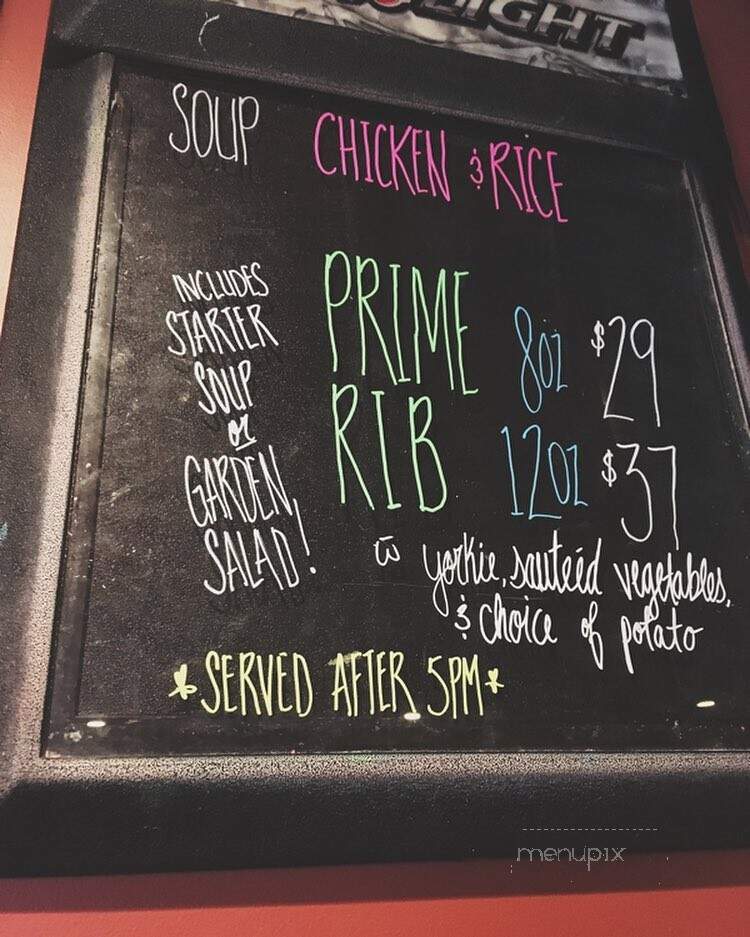 LIGHT
SOUP CHICKEN & RICE
INCLUDES
STARTER
SOUP
or
GARDEN
SALAD!
PRIME
RIB
8oz $29
12oz $37
w̄ yorkie, sautéed vegetables,
& choice of potato
*SERVED AFTER 5PM*
menupix